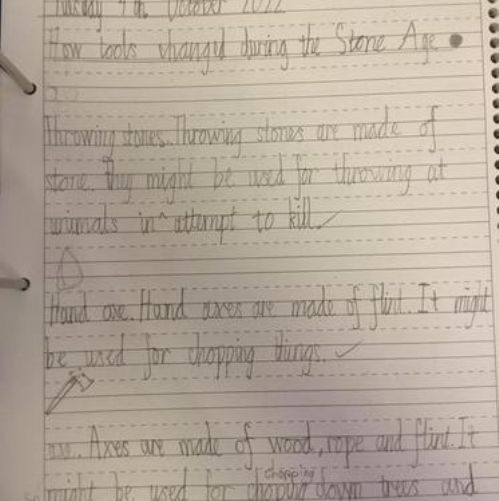 Tuesday 4th October 2022
How tools changed during the Stone Age
Throwing stones. Throwing stones are made of
stone. They might be used for throwing at
animals in^ attempt to kill.
Hand axe. Hand axes are made of flint. It might
be used for chopping things.
axe. Axes are made of wood, rope and flint. It
chopping
might be used for down trees and